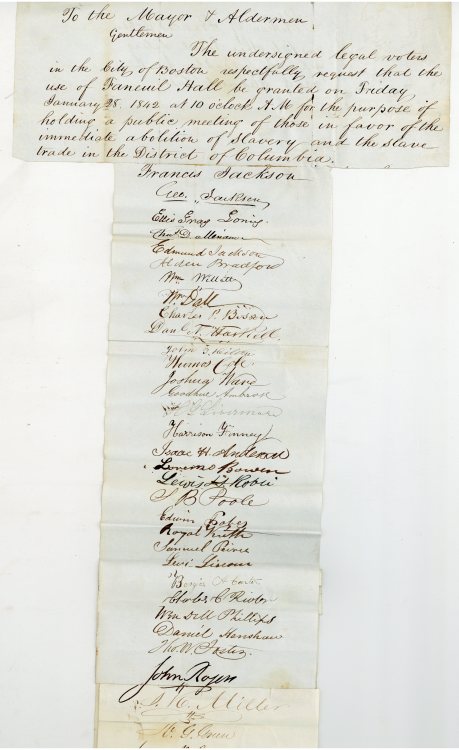 To the Mayor & Aldermen
Gentlemen
The undersigned legal voters
in the City of Boston respectfully request that the
use of Faneuil Hall be granted on Friday
January 28. 1842 at 10 oclock A.M for the purpose of
holding a public meeting of those in favor of the
immediate abolition of slavery and the slave
trade in the District of Columbia.
Francis Jackson
Geo. Jackson
Ellis Gray Loring.
Edmund Jackson
Alden Bradford
Wm Willett
Wm Dall
Charles P. Bosson
Danl N. Haskell.
Thomas Cole
Joshua Ward
Goodhue Ambrose
Harrison Finney
Isaac H. Anderson
Lorenzo Bowen
Lewis H Robie
S B Poole
Edwin
Royal Smith
Samuel Peirce
Levi Lincoln
Charles C
Wendell Phillips
Daniel Henshaw
Tho. W. Foster
John Rogers
J. K. Miller
W. G. Green